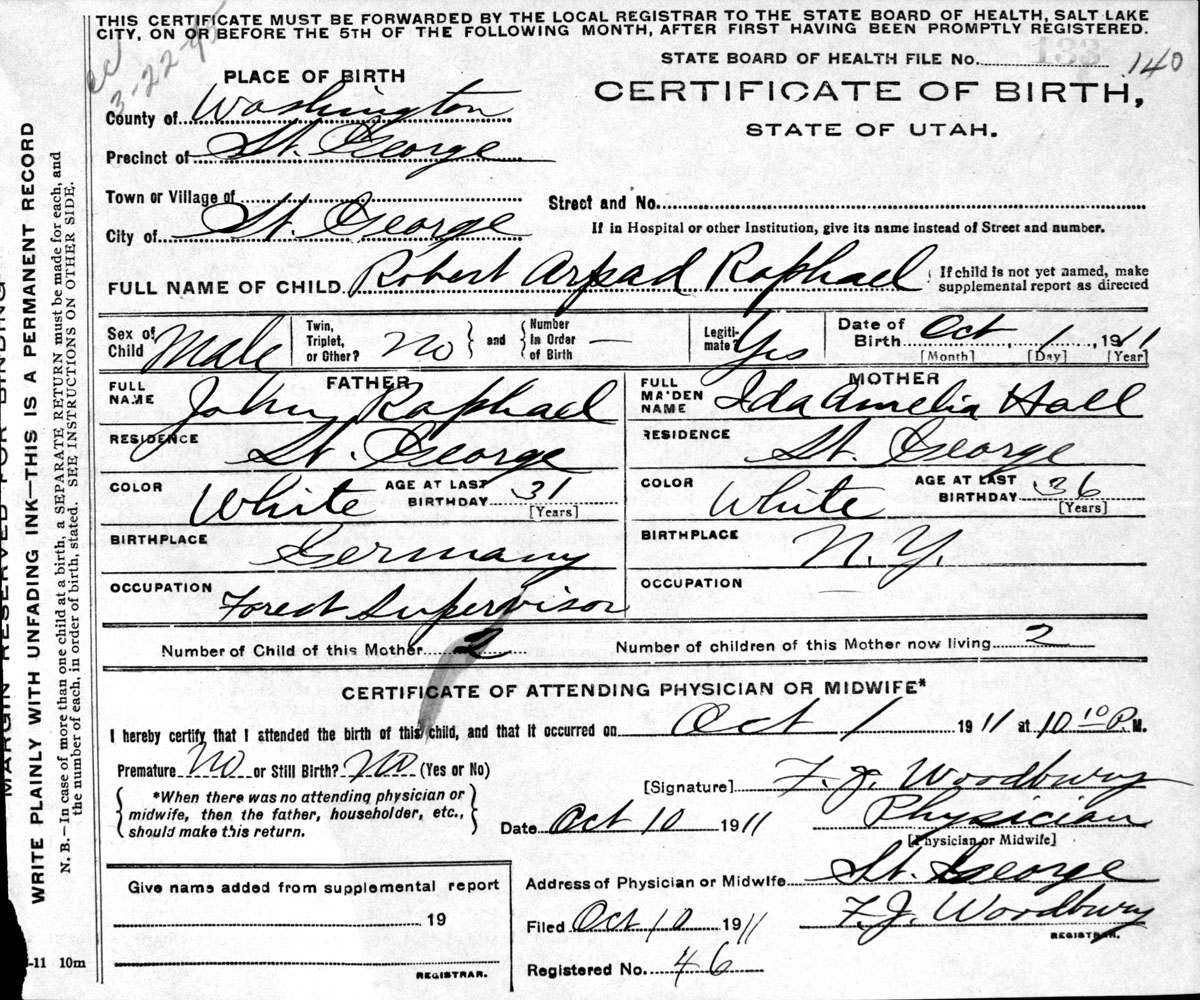 THIS CERTIFICATE MUST BE FORWARDED BY THE LOCAL REGISTRAR TO THE STATE BOARD OF HEALTH, SALT LAKE
CITY, ON OR BEFORE THE 5TH OF THE FOLLOWING MONTH, AFTER FIRST HAVING BEEN PROMPTLY REGISTERED.
3-22-4
STATE BOARD OF HEALTH FILE No. 133 140
PLACE OF BIRTH
CERTIFICATE OF BIRTH,
STATE OF UTAH.
County of Washington
Precinct of St. George
Town or Village of
Street and No.
City of St. George
If in Hospital or other Institution, give its name instead of Street and number.
FULL NAME OF CHILD Robert Arpad Raphael
If child is not yet named, make
supplemental report as directed
Sex of Child Male
Twin, Triplet, or Other? No and Number In Order of Birth —
Legiti-mate? Yes
Date of Birth Oct 1, 1911
[Month] [Day] [Year]
FATHER
FULL NAME John Raphael
RESIDENCE St. George
COLOR White AGE AT LAST BIRTHDAY 31
[Years]
BIRTHPLACE Germany
OCCUPATION Forest Supervisor
MOTHER
FULL MA'DEN NAME Ida Amelia Hall
RESIDENCE St. George
COLOR White AGE AT LAST BIRTHDAY 36
[Years]
BIRTHPLACE N.Y.
OCCUPATION
Number of Child of this Mother 2 Number of children of this Mother now living 2
CERTIFICATE OF ATTENDING PHYSICIAN OR MIDWIFE*
I hereby certify that I attended the birth of this child, and that it occurred on Oct 1 1911 at 10 10 P. M.
Premature No or Still Birth? No (Yes or No)
*When there was no attending physician or
midwife, then the father, householder, etc.,
should make this return.
[Signature] F. J. Woodbury
Date Oct 10 1911 Physician
[Physician or Midwife]
Give name added from supplemental report
19
REGISTRAR.
Address of Physician or Midwife St. George
Filed Oct 10 1911 F. J. Woodbury
REGISTRAR.
Registered No. 46
MARGIN RESERVED FOR BINDING
WRITE PLAINLY WITH UNFADING INK—THIS IS A PERMANENT RECORD
N. B.—In case of more than one child at a birth, a SEPARATE RETURN must be made for each, and
the number of each, in order of birth, stated. SEE INSTRUCTIONS ON OTHER SIDE.
-11 10m